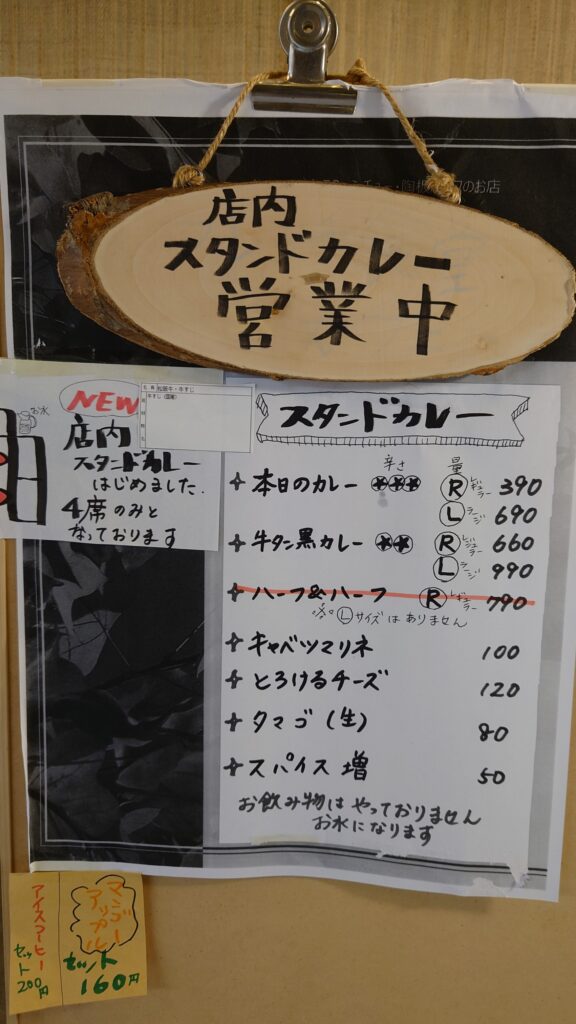 のお店
店内
スタンドカレー
営業中
お水
NEW
店内
スタンドカレー
はじめました.
4席のみと
なっております
名称 松阪牛・牛すじ
牛すじ(国産)
スタンドカレー
辛さ 量
本日のカレー Ⓡ レギュラー 390
Ⓛ ラージ 690
牛タン黒カレー Ⓡ レギュラー 660
Ⓛ ラージ 990
ハーフ&ハーフ Ⓡ レギュラー 790
Ⓛサイズはありません
キャベツマリネ 100
とろけるチーズ 120
タマゴ(生) 80
スパイス増 50
お飲み物はやっておりません
お水になります
マンゴー
アップル
セット
160円
アイスコーヒー
セット
200円